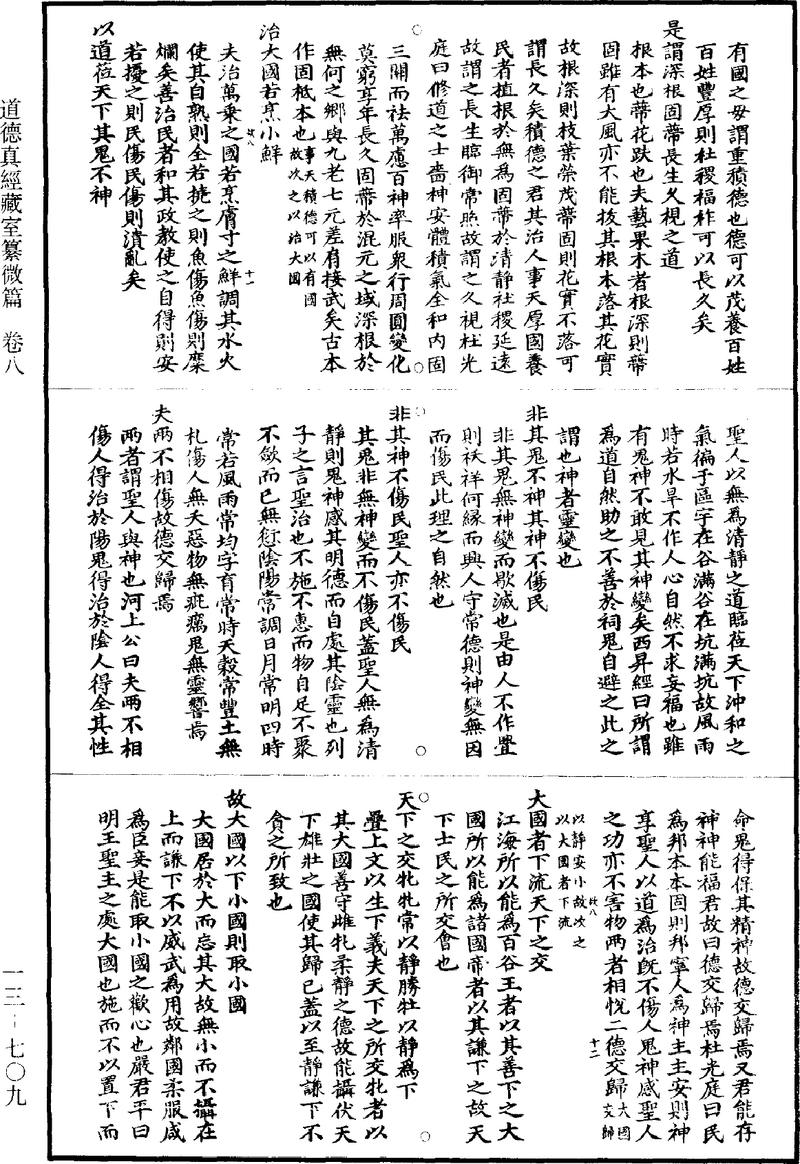 有國之母謂重積德也德可以茂養百姓
百姓豐厚則社稷福祚可以長久矣
是謂深根固蔕長生久視之道
根本也蔕花趺也夫藝果木者根深則蔕
固雖有大風亦不能拔其根本落其花實
故根深則枝葉榮茂蔕固則花實不落可
謂長久矣積德之君其治人事天厚國養
民者植根於無為固蔕於清靜社稷延遠
故謂之長生臨御常照故謂之久視杜光
庭曰修道之士嗇神安體積氣全和內固
三關而祛萬慮百神率服衆行周圓變化
莫窮享年長久固蔕於混元之域深根於
無何之鄉與九老七元差肩接武矣古本
作固柢本也事天積德可以有國
故次之以治大國
治大國若烹小鮮
夫治萬乗之國若烹膚寸之鮮調其水火
使其自熟則全若撓之則魚傷魚傷則糜
爛矣善治民者和其政教使之自得則安
若擾之則民傷民傷則潰亂矣
以道莅天下其鬼不神
聖人以無為清靜之道臨莅天下沖和之
氣徧于區宇在谷滿谷在坑滿坑故風雨
時若水旱不作人心自然不求妄福也雖
有鬼神不敢見其神變矣西昇經曰所謂
為道自然助之不善於祠鬼自避之此之
謂也神者靈變也
非其鬼不神其神不傷民
非其鬼無神變而歇滅也是由人不作舋
則祅祥何緣而興人守常德則神變無因
而傷民此理之自然也
非其神不傷民聖人亦不傷民
其鬼非無神變而不傷民蓋聖人無為清
靜則鬼神感其明德而自處其陰靈也列
子之言聖治也不施不惠而物自足不聚
不斂而已無愆陰陽常調日月常明四時
常若風雨常均字育常時天榖常豐土無
札傷人無夭惡物無疵癘鬼無靈響焉
夫兩不相傷故德交歸焉
兩者謂聖人與神也河上公曰夫兩不相
傷人得治於陽鬼得治於陰人得全其性
命鬼得保其精神故德交歸焉又君能存
神神能福君故曰德交歸焉杜光庭曰民
為邦本本固則邦寧人為神主主安則神
享聖人以道為治旣不傷人鬼神感聖人
之功亦不害物兩者相悅二德交歸大國交歸
以靜安小故次之
以大國者下流
大國者下流天下之交
江海所以能為百谷王者以其善下之大
國所以能為諸國帝者以其謙下之故天
下士民之所交會也
天下之交牝牝常以靜勝牡以靜為下
疊上文以生下義夫天下之所交牝者以
其大國善守雌牝柔靜之德故能攝伏天
下雄壯之國使其歸已蓋以至靜謙下不
貪之所致也
故大國以下小國則取小國
大國居於大而忘其大故無小而不攝在
上而謙下不以威武為用故鄰國柔服咸
為臣妾是能取小國之歡心也嚴君平曰
明王聖主之處大國也施而不以置下而
道德真經藏室纂微篇 卷八
一三－七〇九